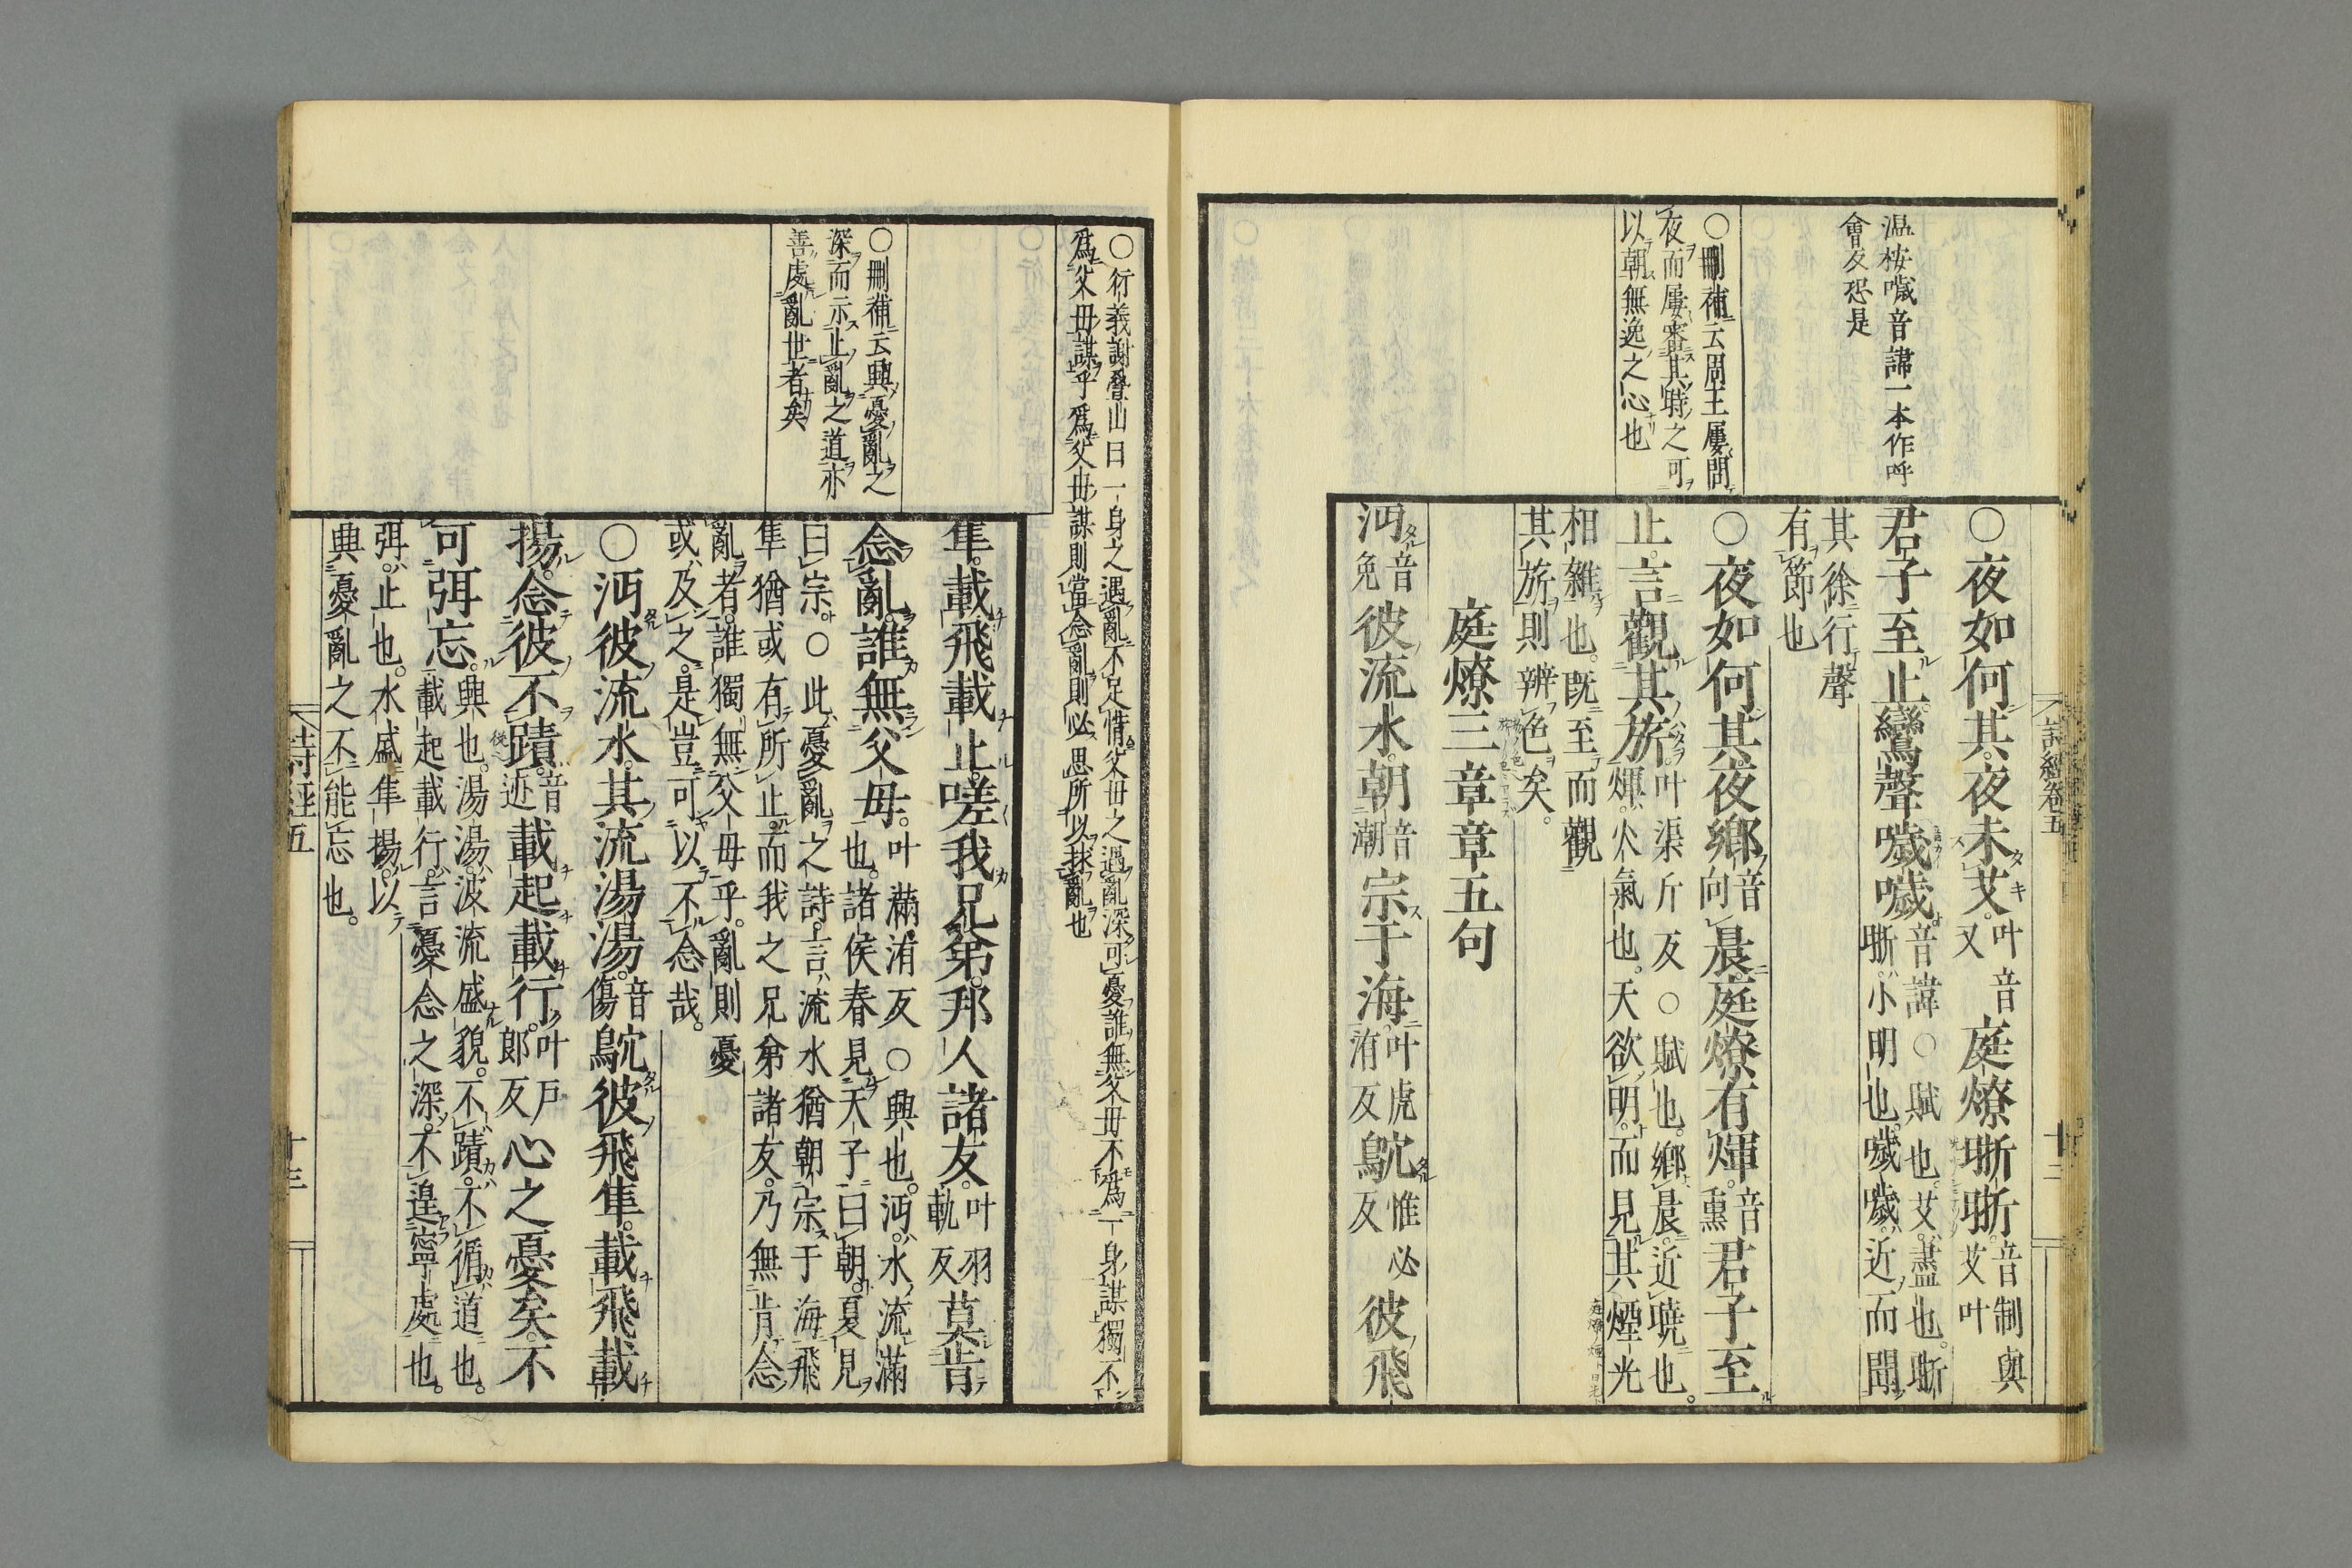 温按噦音諱一本作呼
會反恐是
○刪補云周王屢問
夜而屢審其時之可
以朝無逸之心也
○夜如何其夜未艾叶音乂庭燎晣晣音制與艾叶
君子至止鸞聲噦噦音諱○賦也艾盡也晣晣小明也噦噦近而聞
其徐行聲
有節也
○夜如何其夜鄉音向晨庭燎有煇音熏君子至
止言觀其旂叶渠斤反○賦也鄉晨近曉也煇火氣也天欲明而見其煙光
相雜也既至而觀
其旂則辨色矣
庭燎三章章五句
沔音免彼流水朝音潮宗于海叶虎洧反鴥惟必反彼飛
詩經卷五
十二
○衍義謝疊山曰一身之遇亂不足惜父母之遇亂深可憂誰無父母不爲一身謀獨不
爲父母謀乎爲父母謀則當念亂則必思所以救亂也
○刪補云興憂亂之
深而示止亂之道亦
善處亂世者矣
隼載飛載止嗟我兄弟邦人諸友叶羽軌反莫肯
念亂誰無父母叶滿洧反○興也沔水流滿也諸侯春見天子曰朝夏見
曰宗○此憂亂之詩言流水猶朝宗于海飛
隼猶或有所止而我之兄弟諸友乃無肯念
亂者誰獨無父母乎亂則憂
或及之是豈可以不念哉
○沔彼流水其流湯湯音傷鴥彼飛隼載飛載
揚念彼不蹟音迹載起載行叶戶郎反心之憂矣不
可弭忘興也湯湯波流盛貌不蹟不循道也載起載行言憂念之深不遑寧處也
弭止也水盛隼揚以
興憂亂之不能忘也
詩經五
十三